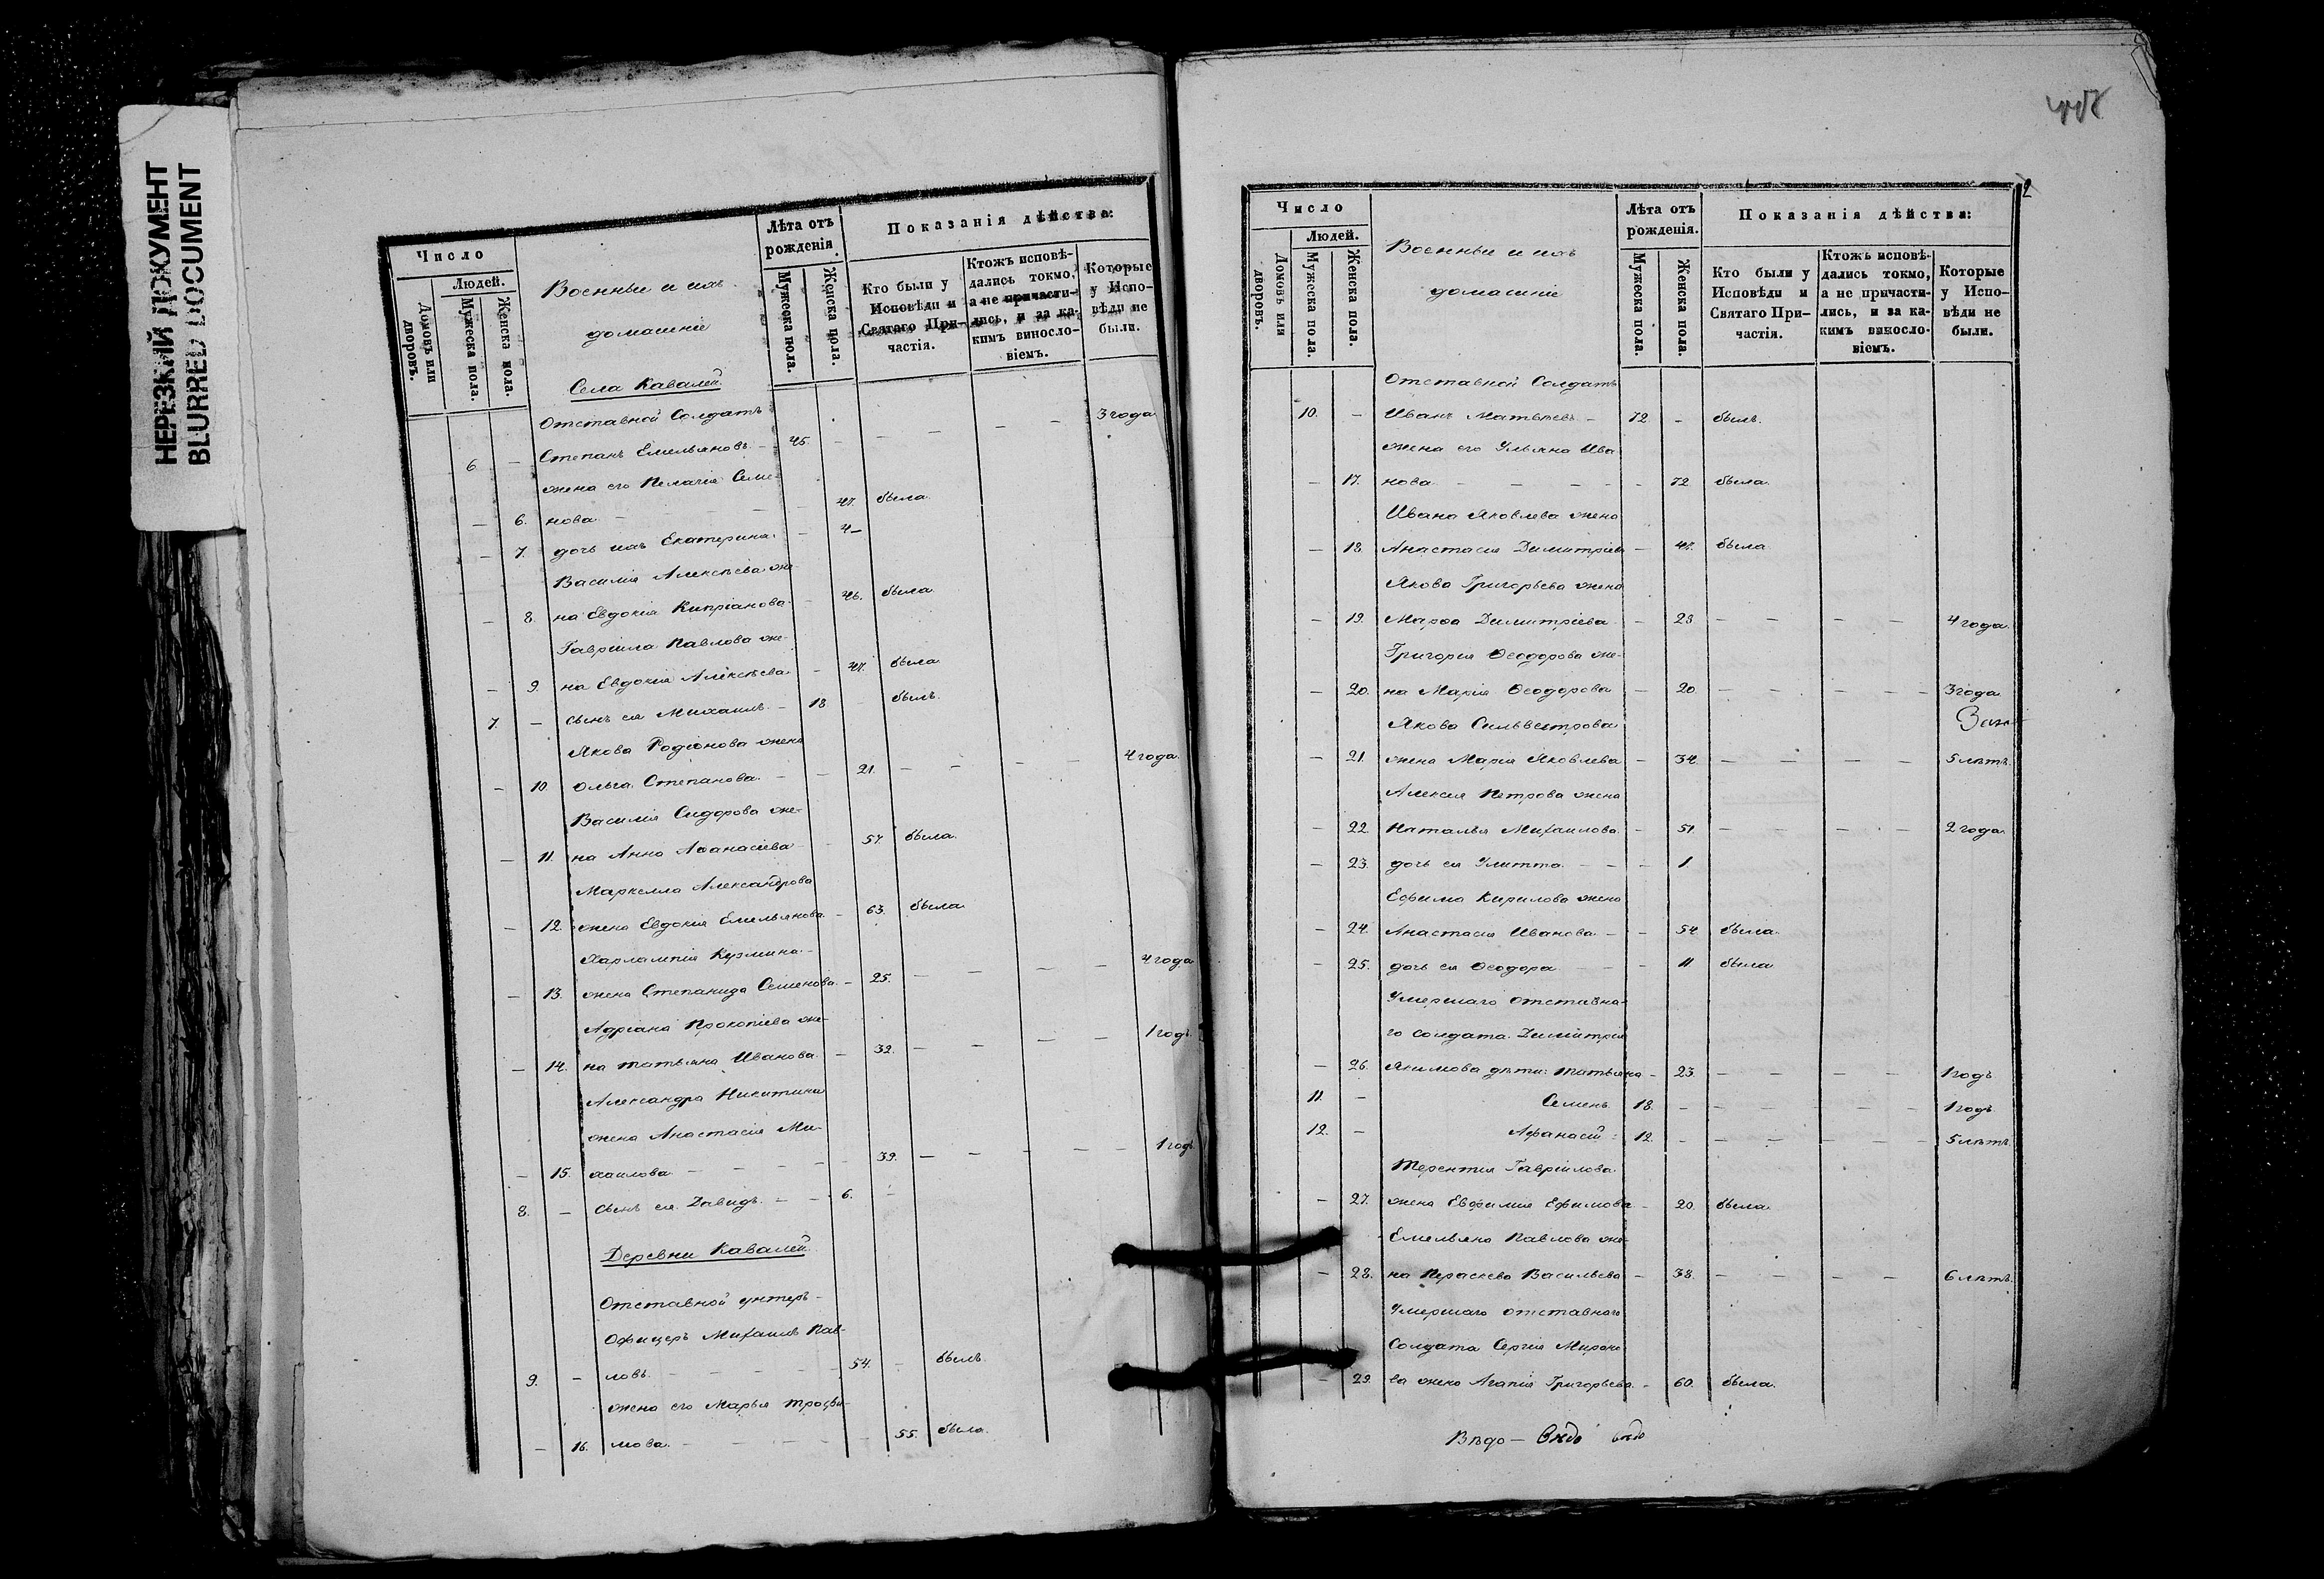 НЕРЕЗКИЙ ДОКУМЕНТ
BLURRED DOCUMENT
Число
Людей.
Домовъ или дворовъ.
Мужеска пола.
Женска пола.
Военные и ихъ
домашніе
Лѣта отъ рожденія.
Мужеска пола.
Женска пола.
Показанія дѣйства:
Кто были у Исповѣди и Святаго Причастія.
Ктожъ исповѣдались токмо, а не причастились, и за какимъ винословіемъ.
Которые у Исповѣди не были.
Села Кавалей
Отставной Солдатъ
6 — Степанъ Емельяновъ — 45. — — — — — 3 года
жена его Пелагія Семе-
— 6. нова — — — 47. была
— 7. дочь ихъ Екатерина — 4 —
Василія Алексѣева же-
— 8. на Евдокія Кипріанова — 46. была
Гавріила Павлова же-
— 9. на Евдокія Алексѣева — 47. была
7. — сынъ ея Михаилъ — 18 — былъ
Якова Родіонова жена
— 10. Ольга Степанова — — 21. — — — — 4 года
Василія Сидорова же-
— 11. на Анна Аѳанасіева — 57. была
Маркелла Александрова
— 12. жена Евдокія Емельянова — 63. была
Харлампія Кузмина —
— 13. жена Степанида Семенова — 25. — — — — 4 года
Адріана Прокопіева же-
— 14. на Татьяна Иванова — 32. — — — — 1 годъ
Александра Никитина
жена Анастасія Ми-
— 15. хаилова — — — — 39. — — — — — 1 годъ
8. — сынъ ея Давидъ — — 6. —
Деревни Кавалей
Отставной унтеръ-
Офицеръ Михаилъ Пав-
9. — ловъ — — — — 54. — былъ
жена его Марья Трофи-
— 16. мова — — — — 55. была
2
Число
Людей.
Домовъ или дворовъ.
Мужеска пола.
Женска пола.
Военные и ихъ
домашніе
Лѣта отъ рожденія.
Мужеска пола.
Женска пола.
Показанія дѣйства:
Кто были у Исповѣди и Святаго Причастія.
Ктожъ исповѣдались токмо, а не причастились, и за какимъ винословіемъ.
Которые у Исповѣди не были.
Отставной Солдатъ
10. — Иванъ Матвѣевъ — 72 — былъ.
жена его Ульяна Ива
— 17. нова — — — — — 72 была
Ивана Яковлева жена
— 18. Анастасія Димитріева — 47. была
Якова Григорьева жена
— 19. Марѳа Димитріева — 28 — — — — 4 года
Григорія Ѳеодорова же-
— 20. на Марія Ѳеодорова — 20 — — — — 3 года
Якова Сильвестрова
— 21. жена Марія Яковлева — 34. — — — — 5 лѣтъ
Алексѣя Петрова жена
— 22. Наталья Михаилова — 51. — — — — 2 года
— 23. дочь ея Улитта — — — 1
Ефима Кирилова жена
— 24. Анастасія Иванова — — 54 была
— 25. дочь ея Ѳеодора — — 11 была
Умершаго отставна-
го солдата Димитрія
— 26. Якимова дѣти: Татьяна — 23. — — — — 1 годъ
11. — Семенъ 18. — — — — — 1 годъ
12. — Афанасій: 12. — — — — — 5 лѣтъ
Терентія Гавріилова
— 27. жена Евфимія Ефимова — 20. была
Емельяна Павлова же-
— 28. на Параскева Васильева — 38. — — — — 6 лѣтъ
Умершаго отставнаго
Солдата Сергія Мироно
— 29. ва жена Агапія Григорьева — 60. была.
Вѣдо —